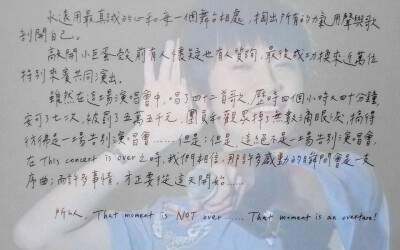 永遠用最真誠的心和每一個舞台相處,掏出所有的力氣用聲與歌
剖開自己。
敲開小巨蛋殼前有人懷疑也有人質詢,最後成功換來近萬位
特別來賓共同演出。
雖然在這場演唱會中,唱了四十二首歌,歷時四個小時又四十分鐘,
安可了七次,被罰了五萬五千元,團員和觀眾掉了無數滴眼淚,搞得
彷彿是一場告別演唱會……但是;但是,這絕不是一場告別演唱會,
在This concert is over之時,我們相信,那許多感動的瞬間會是一支
序曲;而許多事情,才正要從這天開始……
所以, That moment is NOT over ..... That moment is an overture!